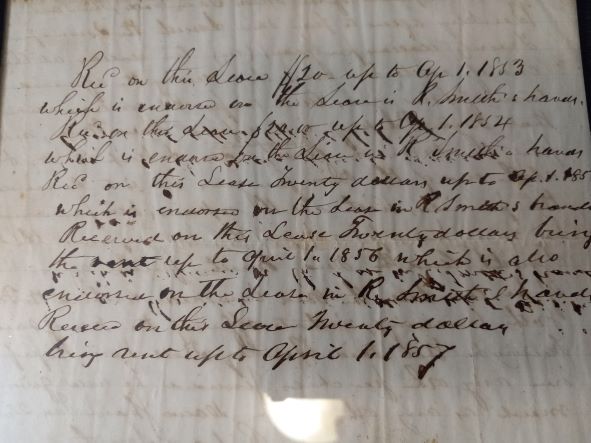 Recd on this Lease $20 up to Ap 1. 1853
which is endorsed on the Lease in R. Smith's hands.
Recd on this Lease up to Ap 1. 1854
which is endorsed on the Lease in R Smith's hands
Recd on this Lease Twenty dollars up to Ap. 1. 185
which is endorsed on the Lease in R Smith's hands
Received on this Lease Twenty dollars being
the rent up to April 1. 1856 which is also
endorsed on the Lease in R. Smith's hands
Received on this Lease Twenty dollars
being rent up to April 1. 1857